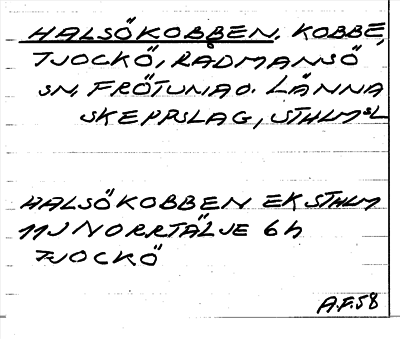 HALSÖKOBBEN, KOBBE,
TJOCKÖ, RÅDMANSÖ
SN, FRÖTUNA O. LÄNNA
SKEPPSLAG, STHLMSL
HALSÖKOBBEN EK STHLM
11J NORRTÄLJE 6h
TJOCKÖ
A.F. 58